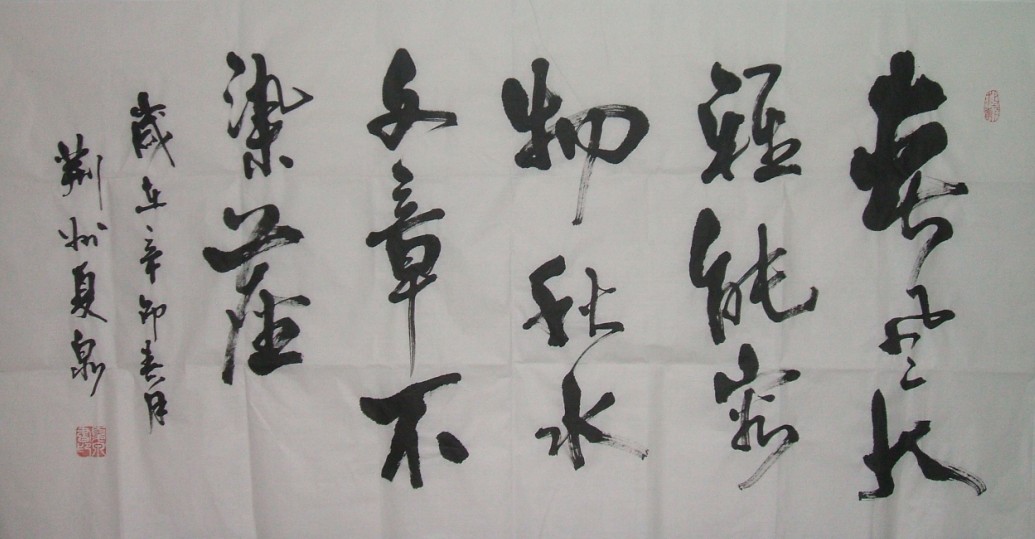 春風大
雅能容
物秋水
文章不
染塵
歲在辛卯春月
荊州夏泉